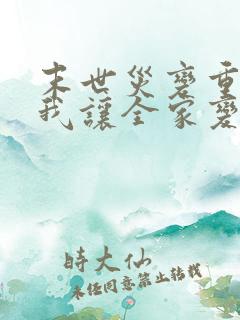 末世災變重
我讓全家變
時大仙
未經同意禁止轉載